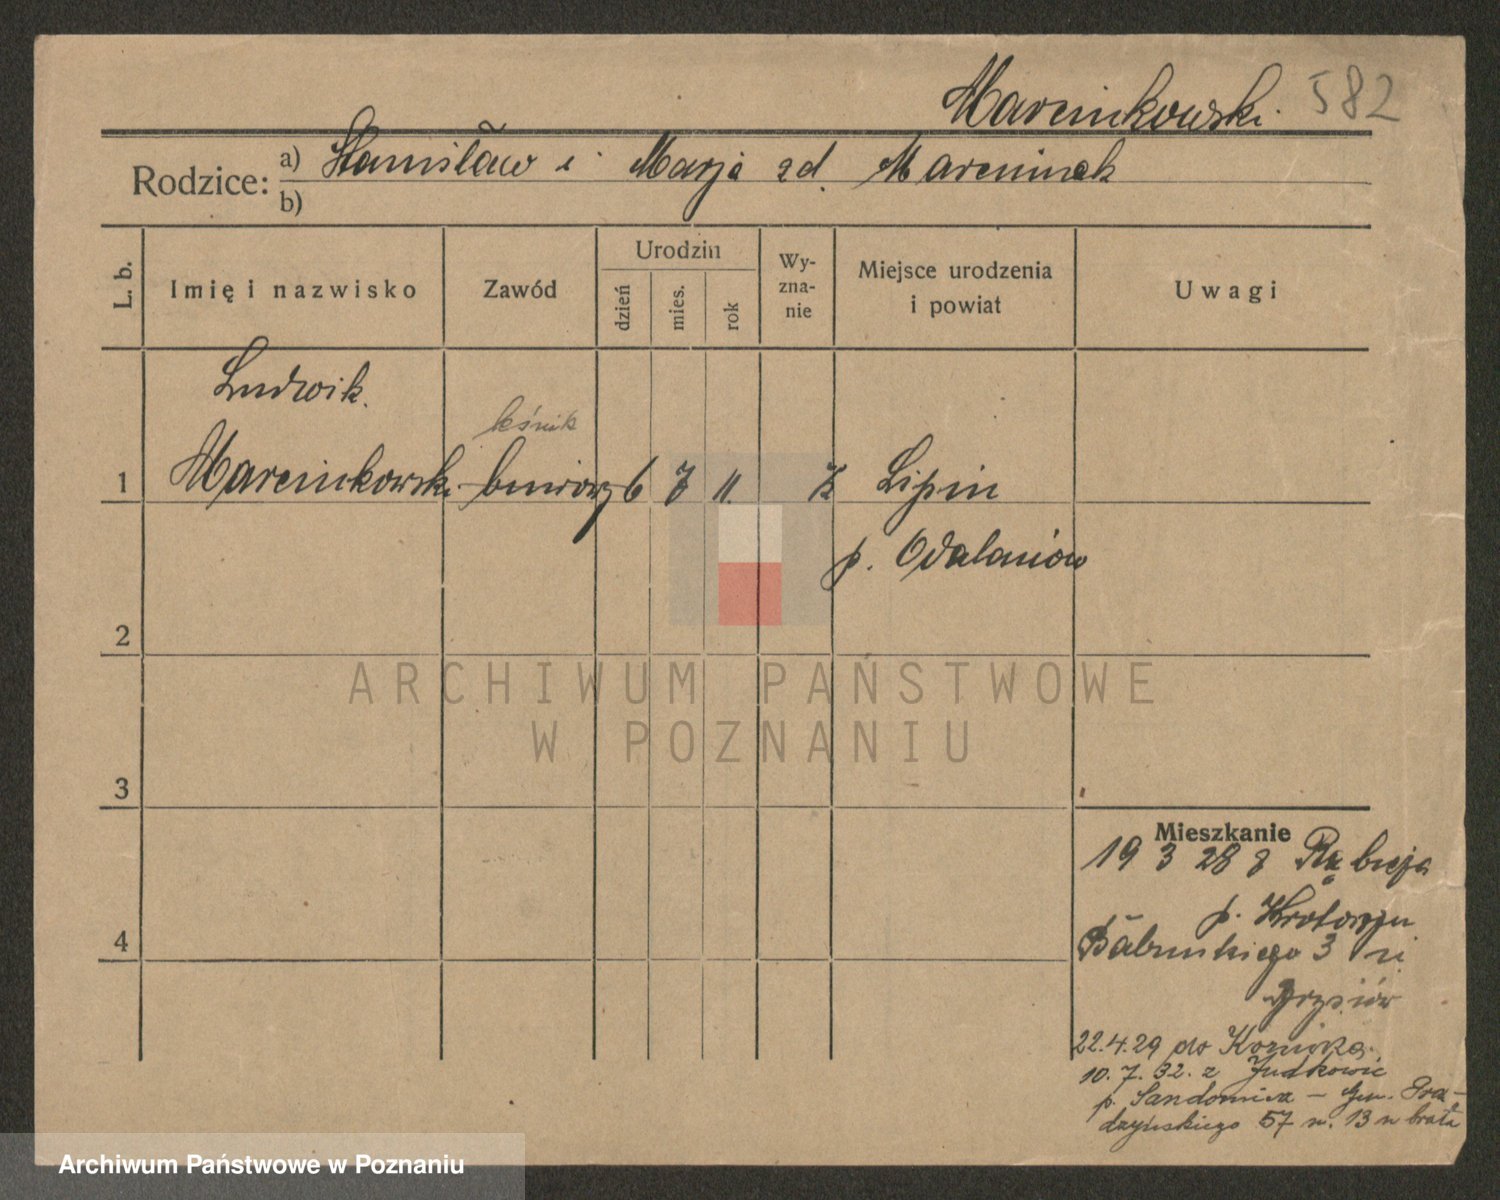 Marcinkowski. 582
Rodzice: a) Stanisław i Marja zd. Marciniak
b)
L. b. Imię i nazwisko Zawód Urodzin dzień mies. rok Wyznanie Miejsce urodzenia i powiat Uwagi
Ludwik
leśnik
1 Marcinkowski 6 7 11. k Lipin
p. Odalanów
2
ARCHIWUM PAŃSTWOWE
W POZNANIU
3
Mieszkanie
19 3 28 z
4 p.
3
22.4.29 do
10. 7. 32. z Judkowic
p. Sandomierz – Gen. Prą-
dzyńskiego 57 m. 13 u brata
Archiwum Państwowe w Poznaniu